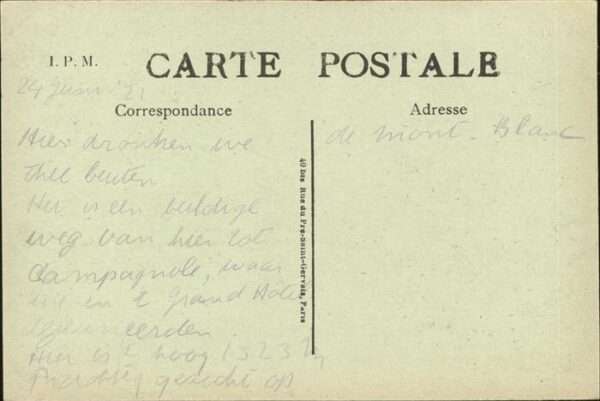 I. P. M.
CARTE POSTALE
24 Juni
Correspondance
Adresse
Hier dronken we
thee buiten
Het is een
weg van hier tot
Campagnole, waar
we in 't Grand Hotel
Hier is 't hoog 1323 M
Prachtig gezicht op
de Mont-Blanc
40 bis Rue du Pré-Saint-Gervais, Paris